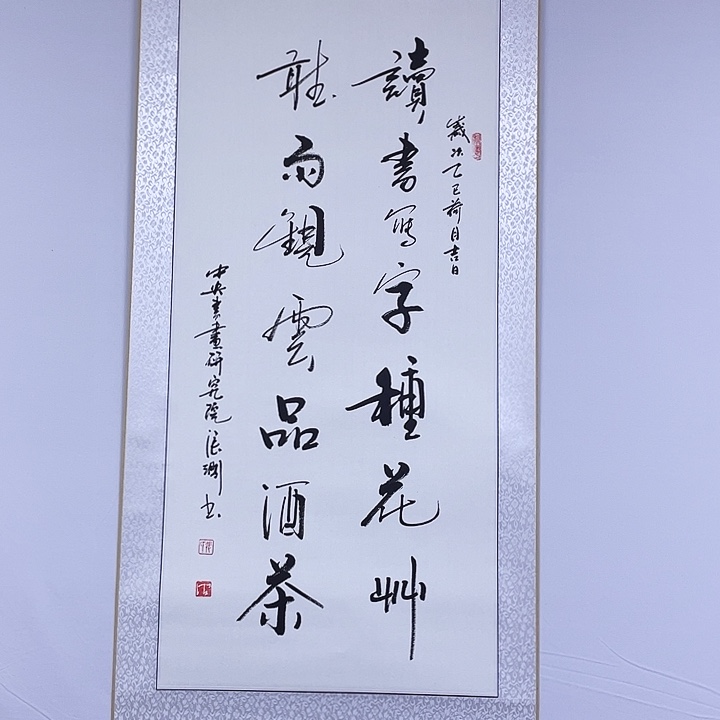 歲次乙巳荷月吉日
讀書写字種花艸
聽雨觀雲品酒茶
中央書畫研究院張淵书